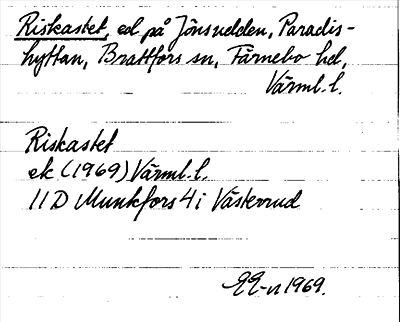 Riskastet, ed på Jönsudden, Paradis-
hyttan, Brattfors sn, Färnebo hd,
Värml. l.
Riskastet
ek (1969) Värml. l.
11D Munkfors 4i Västerrud
1969.